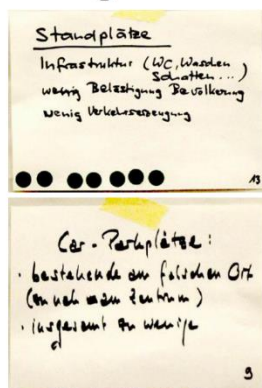 Standplätze
Infrastruktur (WC, Waschen
Schatten...)
wenig Belästigung Bevölkerung
wenig Verkehrserzeugung
13
Car-Parkplätze:
· bestehende am falschen Ort
(zu nah am Zentrum)
· insgesamt zu wenige
9